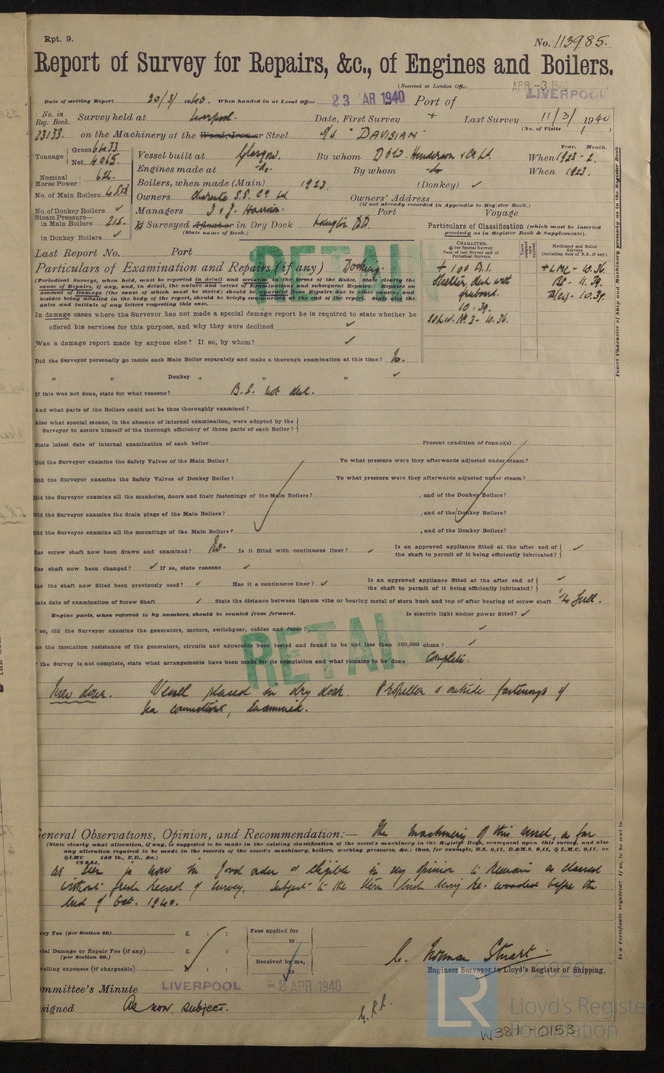 Rpt. 9.
No. 113985.
Report of Survey for Repairs, &c., of Engines and Boilers.
(Received at London Office
APR -3 1940
LIVERPOOL
Date of writing Report 20/3/1940. When handed in at Local Office 23 MAR 1940 Port of
No. in Reg. Book. Survey held at Liverpool. Date, First Survey + Last Survey 11/3/1940
(No. of Visits 1)
23133 on the Machinery of the Wood, Iron or Steel "DAVISIAN"
Tonnage Gross 6433 Net 4065
Vessel built at Glasgow. By whom D. & W. Henderson & Co Ld. When 1923-2.
Year. Month.
Engines made at do. By whom do When 1923.
Nominal Horse Power
Boilers, when made (Main) 1923. (Donkey) ✓
No. of Main Boilers
Owners Charente S.S. Co Ld Owners' Address
(if not already recorded in Appendix to Register Book.)
No. of Donkey Boilers ✓
Managers T. & J. Harrison. Port Voyage
Steam Pressure— in Main Boilers 215.
If Surveyed Afloat or in Dry Dock Langton D.D.
(State name of Dock.)
in Donkey Boilers ✓
Particulars of Classification (which must be inserted precisely as in Register Book & Supplements).
Last Report No. Port
RETAIN
Particulars of Examination and Repairs (if any) Docking.
+ 100 A.1.
Shelter deck with freeboard.
10.39.
+LMC - 10.36.
In damage cases where the Surveyor has not made a special damage report he is required to state whether he
offered his services for this purpose, and why they were declined ✓
Was a damage report made by anyone else? If so, by whom? ✓
Did the Surveyor personally go inside each Main Boiler separately and make a thorough examination at this time? No.
" " Donkey " " " ✓
If this was not done, state for what reasons? B.S. not due.
And what parts of the Boilers could not be thus thoroughly examined?
Also what special means, in the absence of internal examination, were adopted by the
Surveyor to assure himself of the thorough efficiency of those parts of each Boiler?
State latest date of internal examination of each boiler Present condition of funnel(s)
Did the Surveyor examine the Safety Valves of the Main Boiler? To what pressure were they afterwards adjusted under steam?
Did the Surveyor examine the Safety Valves of Donkey Boiler? To what pressure were they afterwards adjusted under steam?
Did the Surveyor examine all the manholes, doors and their fastenings of the Main Boilers? , and of the Donkey Boilers?
Did the Surveyor examine the drain plugs of the Main Boilers? , and of the Donkey Boilers?
Did the Surveyor examine all the mountings of the Main Boilers? , and of the Donkey Boilers?
Has screw shaft now been drawn and examined? No. Is it fitted with continuous liner? ✓ Is an approved appliance fitted at the after end of the shaft to permit of it being efficiently lubricated? ✓
Has shaft now been changed? ✓ If so, state reasons ✓
Has the shaft now fitted been previously used? ✓ Has it a continuous liner? ✓ Is an approved appliance fitted at the after end of the shaft to permit of it being efficiently lubricated? ✓
State date of examination of Screw Shaft ✓ State the distance between lignum vitæ or bearing metal of stern bush and top of after bearing of screw shaft 1/4 full.
Engine parts, when referred to by numbers, should be counted from forward. Is electric light and/or power fitted? ✓
If so, did the Surveyor examine the generators, motors, switchgear, cables and fuses ✓
RETAIN
Has the insulation resistance of the generators, circuits and apparatus been tested and found to be not less than 100,000 ohms? ✓
If the Survey is not complete, state what arrangements have been made for its completion and what remains to be done Complete.
Now done. Vessel placed in dry dock. Propeller & outside fastenings of
sea connections, examined.
General Observations, Opinion, and Recommendation:— The machinery of this vessel, as far
as seen is now in good order & eligible in my opinion to remain as classed
without fresh record of survey, subject to the stern bush being re-wooded before the
end of Oct. 1940.
Survey Fee (per Section 29) £ : :
Fees applied for
19
Special Damage or Repair Fee (if any) £ : :
(per Section 29.)
Received by me,
Travelling expenses (if chargeable) £ : :
19
C. Norman Stuart.
Engineer Surveyor to Lloyd's Register of Shipping.
Committee's Minute LIVERPOOL -2 APR 1940
Assigned As now subject.
© 2020
LR
Lloyd's Register
Foundation
W381-0153